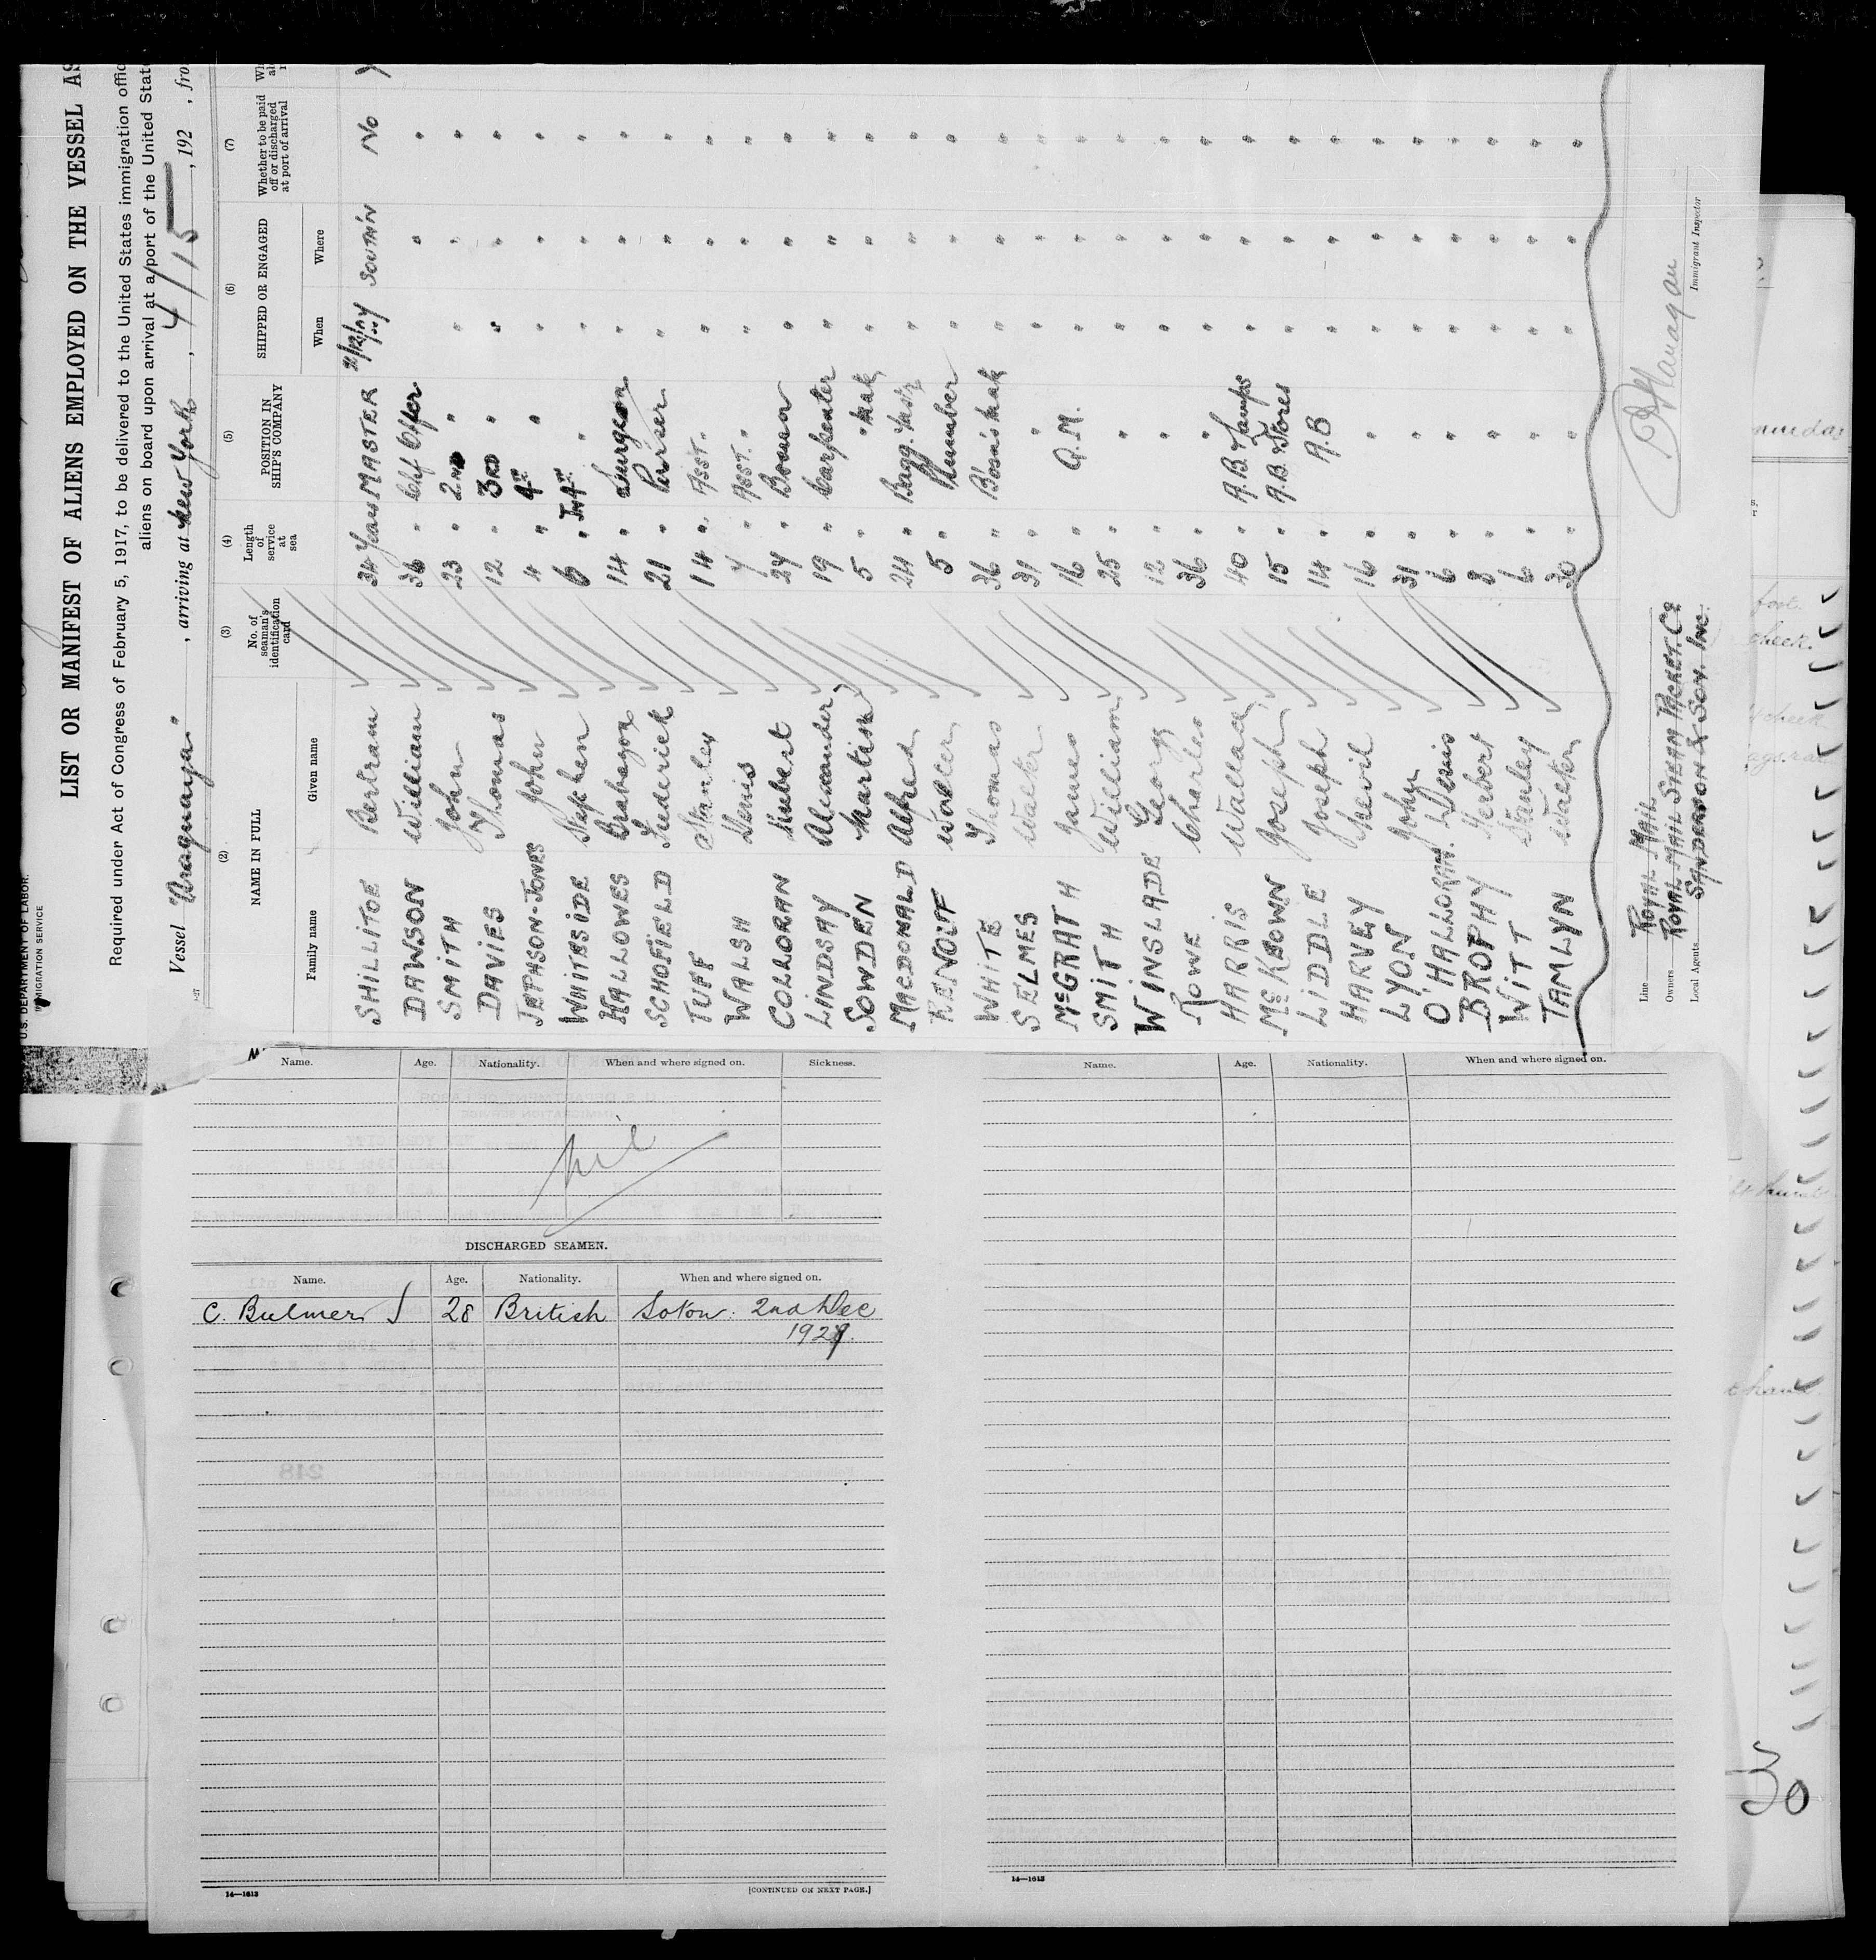 U.S. DEPARTMENT OF LABOR
IMMIGRATION SERVICE
LIST OR MANIFEST OF ALIENS EMPLOYED ON THE VESSEL AS
Required under Act of Congress of February 5, 1917, to be delivered to the United States immigration offic
aliens on board upon arrival at a port of the United State
Vessel "Araguaya" , arriving at New York , 4/15 , 192 , fro
(2) (3) (4) (5) (6) (7)
NAME IN FULL No. of seaman's identification card Length of service at sea POSITION IN SHIP'S COMPANY SHIPPED OR ENGAGED Whether to be paid off or discharged at port of arrival
Family name Given name When Where
SHILLITOE Bertram 34 Years MASTER SOUTH'N No
DAWSON William 36 " Chf Offer " "
SMITH John 23 " 2ND " " " "
DAVIES Thomas 12 " 3RD " " " "
JEPHSON-JONES John 4 " 4TH " " " "
WHITESIDE Stephen 6 " Jn 4TH " " "
HALLOWES Brabazon 14 " Surgeon " " "
SCHOFIELD Frederick 21 " Purser " " "
TUFF Stanley 14 " ASST. " " " "
WALSH Denis 7 " ASST. " " " "
COLLORAN Hubert 27 " Bosun " " "
LINDSAY Alexander 19 " Carpenter " " "
SOWDEN Martin 5 " " Mate " " "
MACDONALD Alfred 24 " Bagg. Mastr " " "
RENOUF Walter 5 " Plumber " " "
WHITE Thomas 36 " Bosn's Mate " " "
SELMES Walter 31 " " " " "
McGRATH James 16 " Q.M. " " "
SMITH William 25 " " " " "
WINSLADE George 12 " " " " "
ROWE Charles 36 " " " " "
HARRIS Wallace 40 " A.B. Lamps " " "
McKEOWN Joseph 15 " A.B. Stores " " "
LIDDLE Joseph 14 " A.B " " "
HARVEY Nevil 16 " " " " "
LYON John 31 " " " " "
O'HALLORAN Denis 6 " " " " "
BROPHY Herbert 8 " " " " "
WITT Stanley 6 " " " " "
TAMLYN Walter 30 " " " " "
Line ROYAL MAIL
Owners ROYAL MAIL STEAM PACKET Co
Local Agents SANDERSON & SON. INC.
Immigrant Inspector
Name. Age. Nationality. When and where signed on. Sickness.
nil
DISCHARGED SEAMEN.
Name. Age. Nationality. When and where signed on.
C. Bulmer 28 British Soton: 2nd Dec
1927
14—1613 [CONTINUED ON NEXT PAGE.]
Name. Age. Nationality. When and where signed on.
14—1613
30